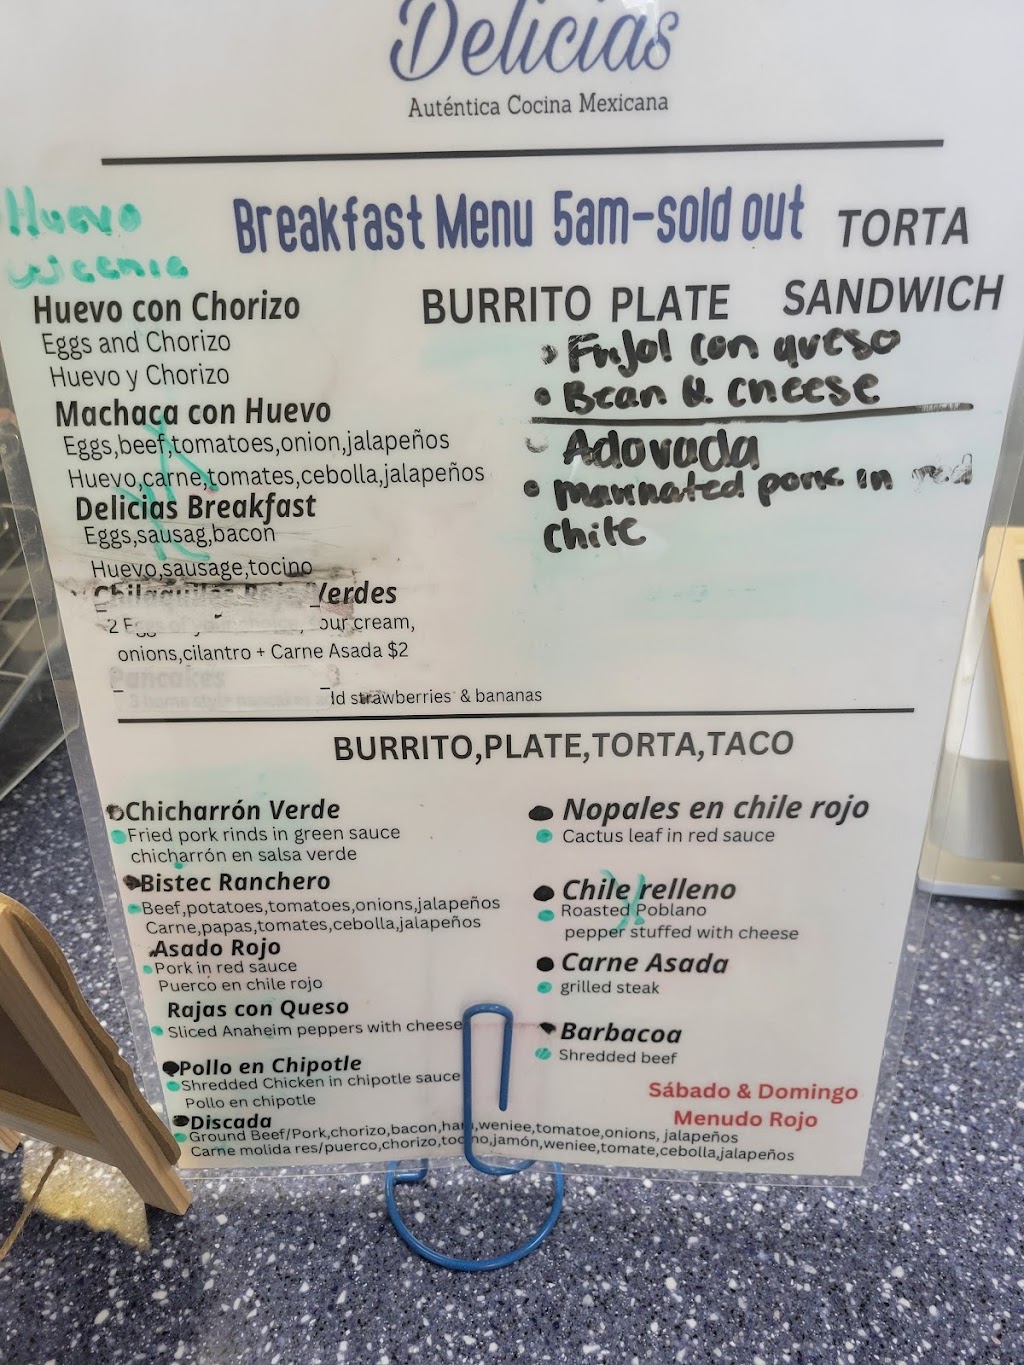 Delicias
Auténtica Cocina Mexicana
Huevo
Breakfast Menu 5am-sold out
TORTA
SANDWICH
BURRITO PLATE
Huevo con Chorizo
Eggs and Chorizo
Huevo y Chorizo
Machaca con Huevo
Eggs,beef,tomatoes,onion,jalapeños
Huevo,carne,tomates,cebolla,jalapeños
Delicias Breakfast
Eggs,sausag,bacon
Huevo,sausage,tocino
Chilaquiles Verdes
2 Eggs of your choice, our cream,
onions,cilantro + Carne Asada $2
Pancakes
3 home style pancakes ld strawberries & bananas
Frijol con queso
Bean & cheese
Adovada
Marinated pork in red
chile
BURRITO,PLATE,TORTA,TACO
Chicharrón Verde
Fried pork rinds in green sauce
chicharrón en salsa verde
Bistec Ranchero
Beef,potatoes,tomatoes,onions,jalapeños
Carne,papas,tomates,cebolla,jalapeños
Asado Rojo
Pork in red sauce
Puerco en chile rojo
Rajas con Queso
Sliced Anaheim peppers with cheese
Pollo en Chipotle
Shredded Chicken in chipotle sauce
Pollo en chipotle
Discada
Ground Beef/Pork,chorizo,bacon,ham,weniee,tomatoe,onions, jalapeños
Carne molida res/puerco,chorizo,tocino,jamón,weniee,tomate,cebolla,jalapeños
Nopales en chile rojo
Cactus leaf in red sauce
Chile relleno
Roasted Poblano
pepper stuffed with cheese
Carne Asada
grilled steak
Barbacoa
Shredded beef
Sábado & Domingo
Menudo Rojo